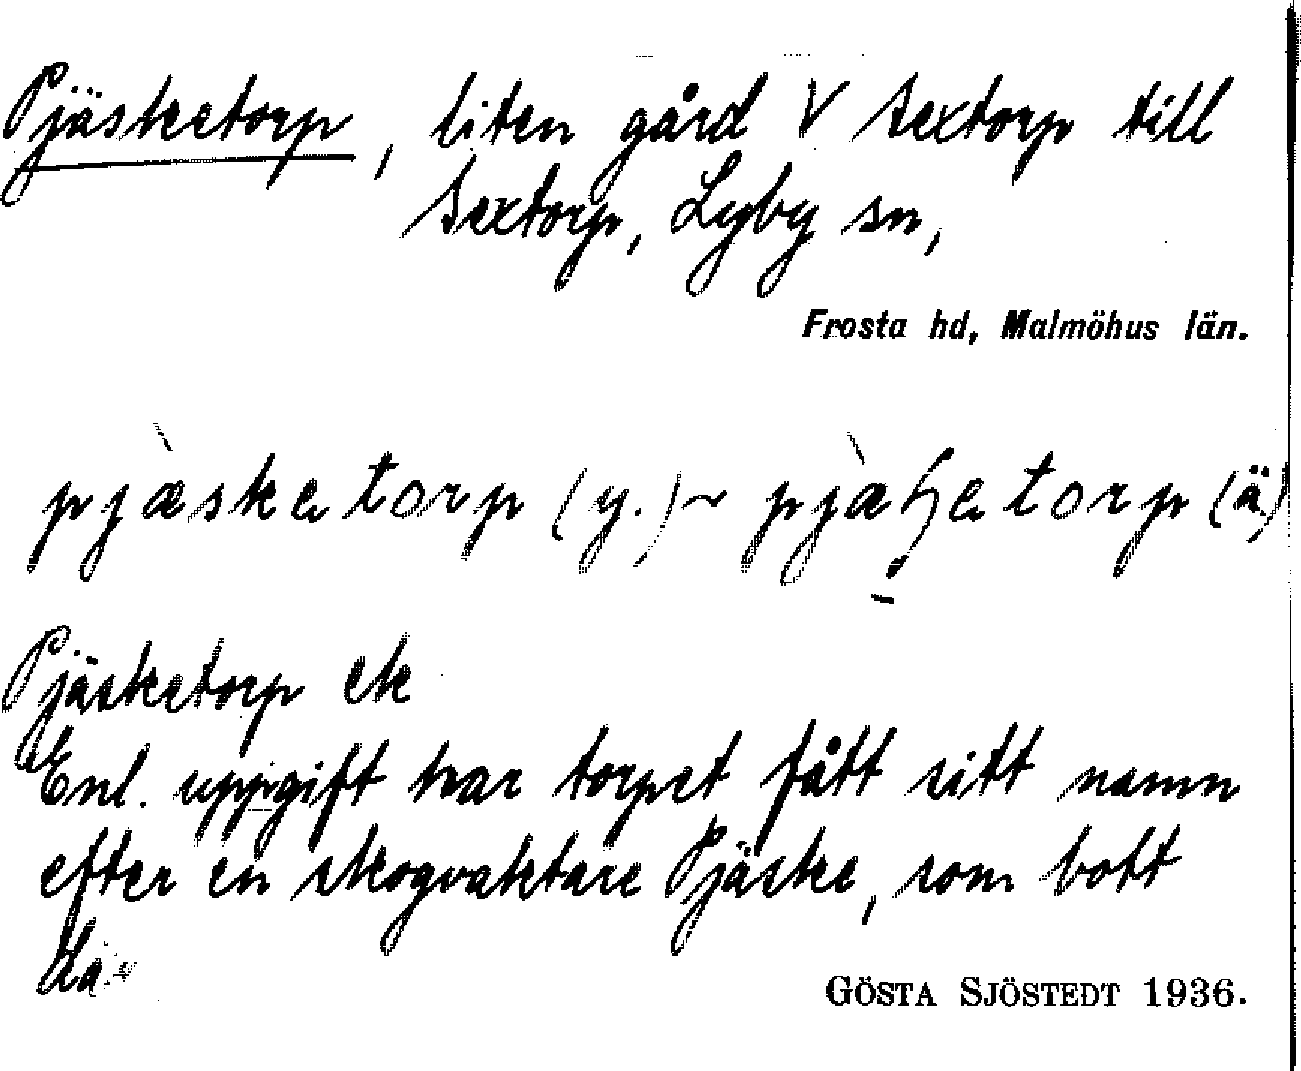 Pjäsketorp, liten gård V Sextorp till
Sextorp, Lyby sn,
Frosta hd, Malmöhus län.
pjæsketorp (y.) ~ pjæ torp (ä)
Pjäsketorp ek
Enl. uppgift har torpet fått sitt namn
efter en skogvaktare Pjäske, som bott
där
GÖSTA SJÖSTEDT 1936.